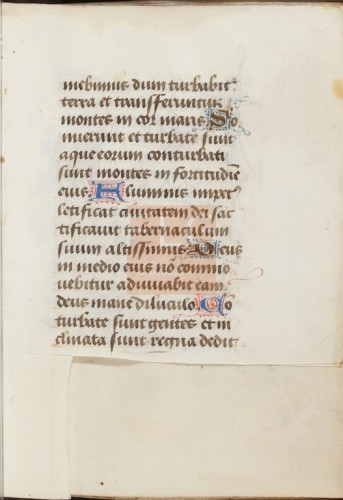 mebimus dum turbabit᷑
terra et transfferuntur
montes in cor maris So
nuerunt et turbate sunt
aque eorum conturbati
sunt montes in fortitudiē
eius. Fluminis impet᷑
letificat civitatem dei sāc
tificavit tabernaculum
suum altissimus Deus
in medio eius nō commo
uebitur adiuvabit eam
deus mane diluculo Co
turbate sunt gentes et in
clinata sunt regna dedit